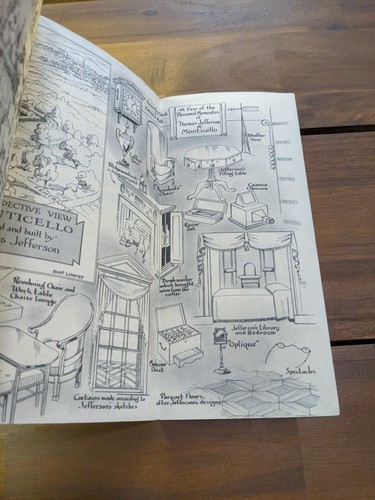 A Few of the
Personal Mementos
of
Thomas Jefferson
at
Monticello
Weather
Vane
Jefferson's
Filing Table
Camera
Obscura
Razor
Set
Chair"
Dumbwaiter
which brought
wine from the
cellar
PECTIVE VIEW
TICELLO
d and built by
s Jefferson
Revolving Chair and
Work Table
Chaise Lounge
Jefferson's Library
and Bedroom
"Optique"
Spectacles
Desk
Curtains made according to
Jefferson's sketches
Parquet Floors,
after Jefferson's designs